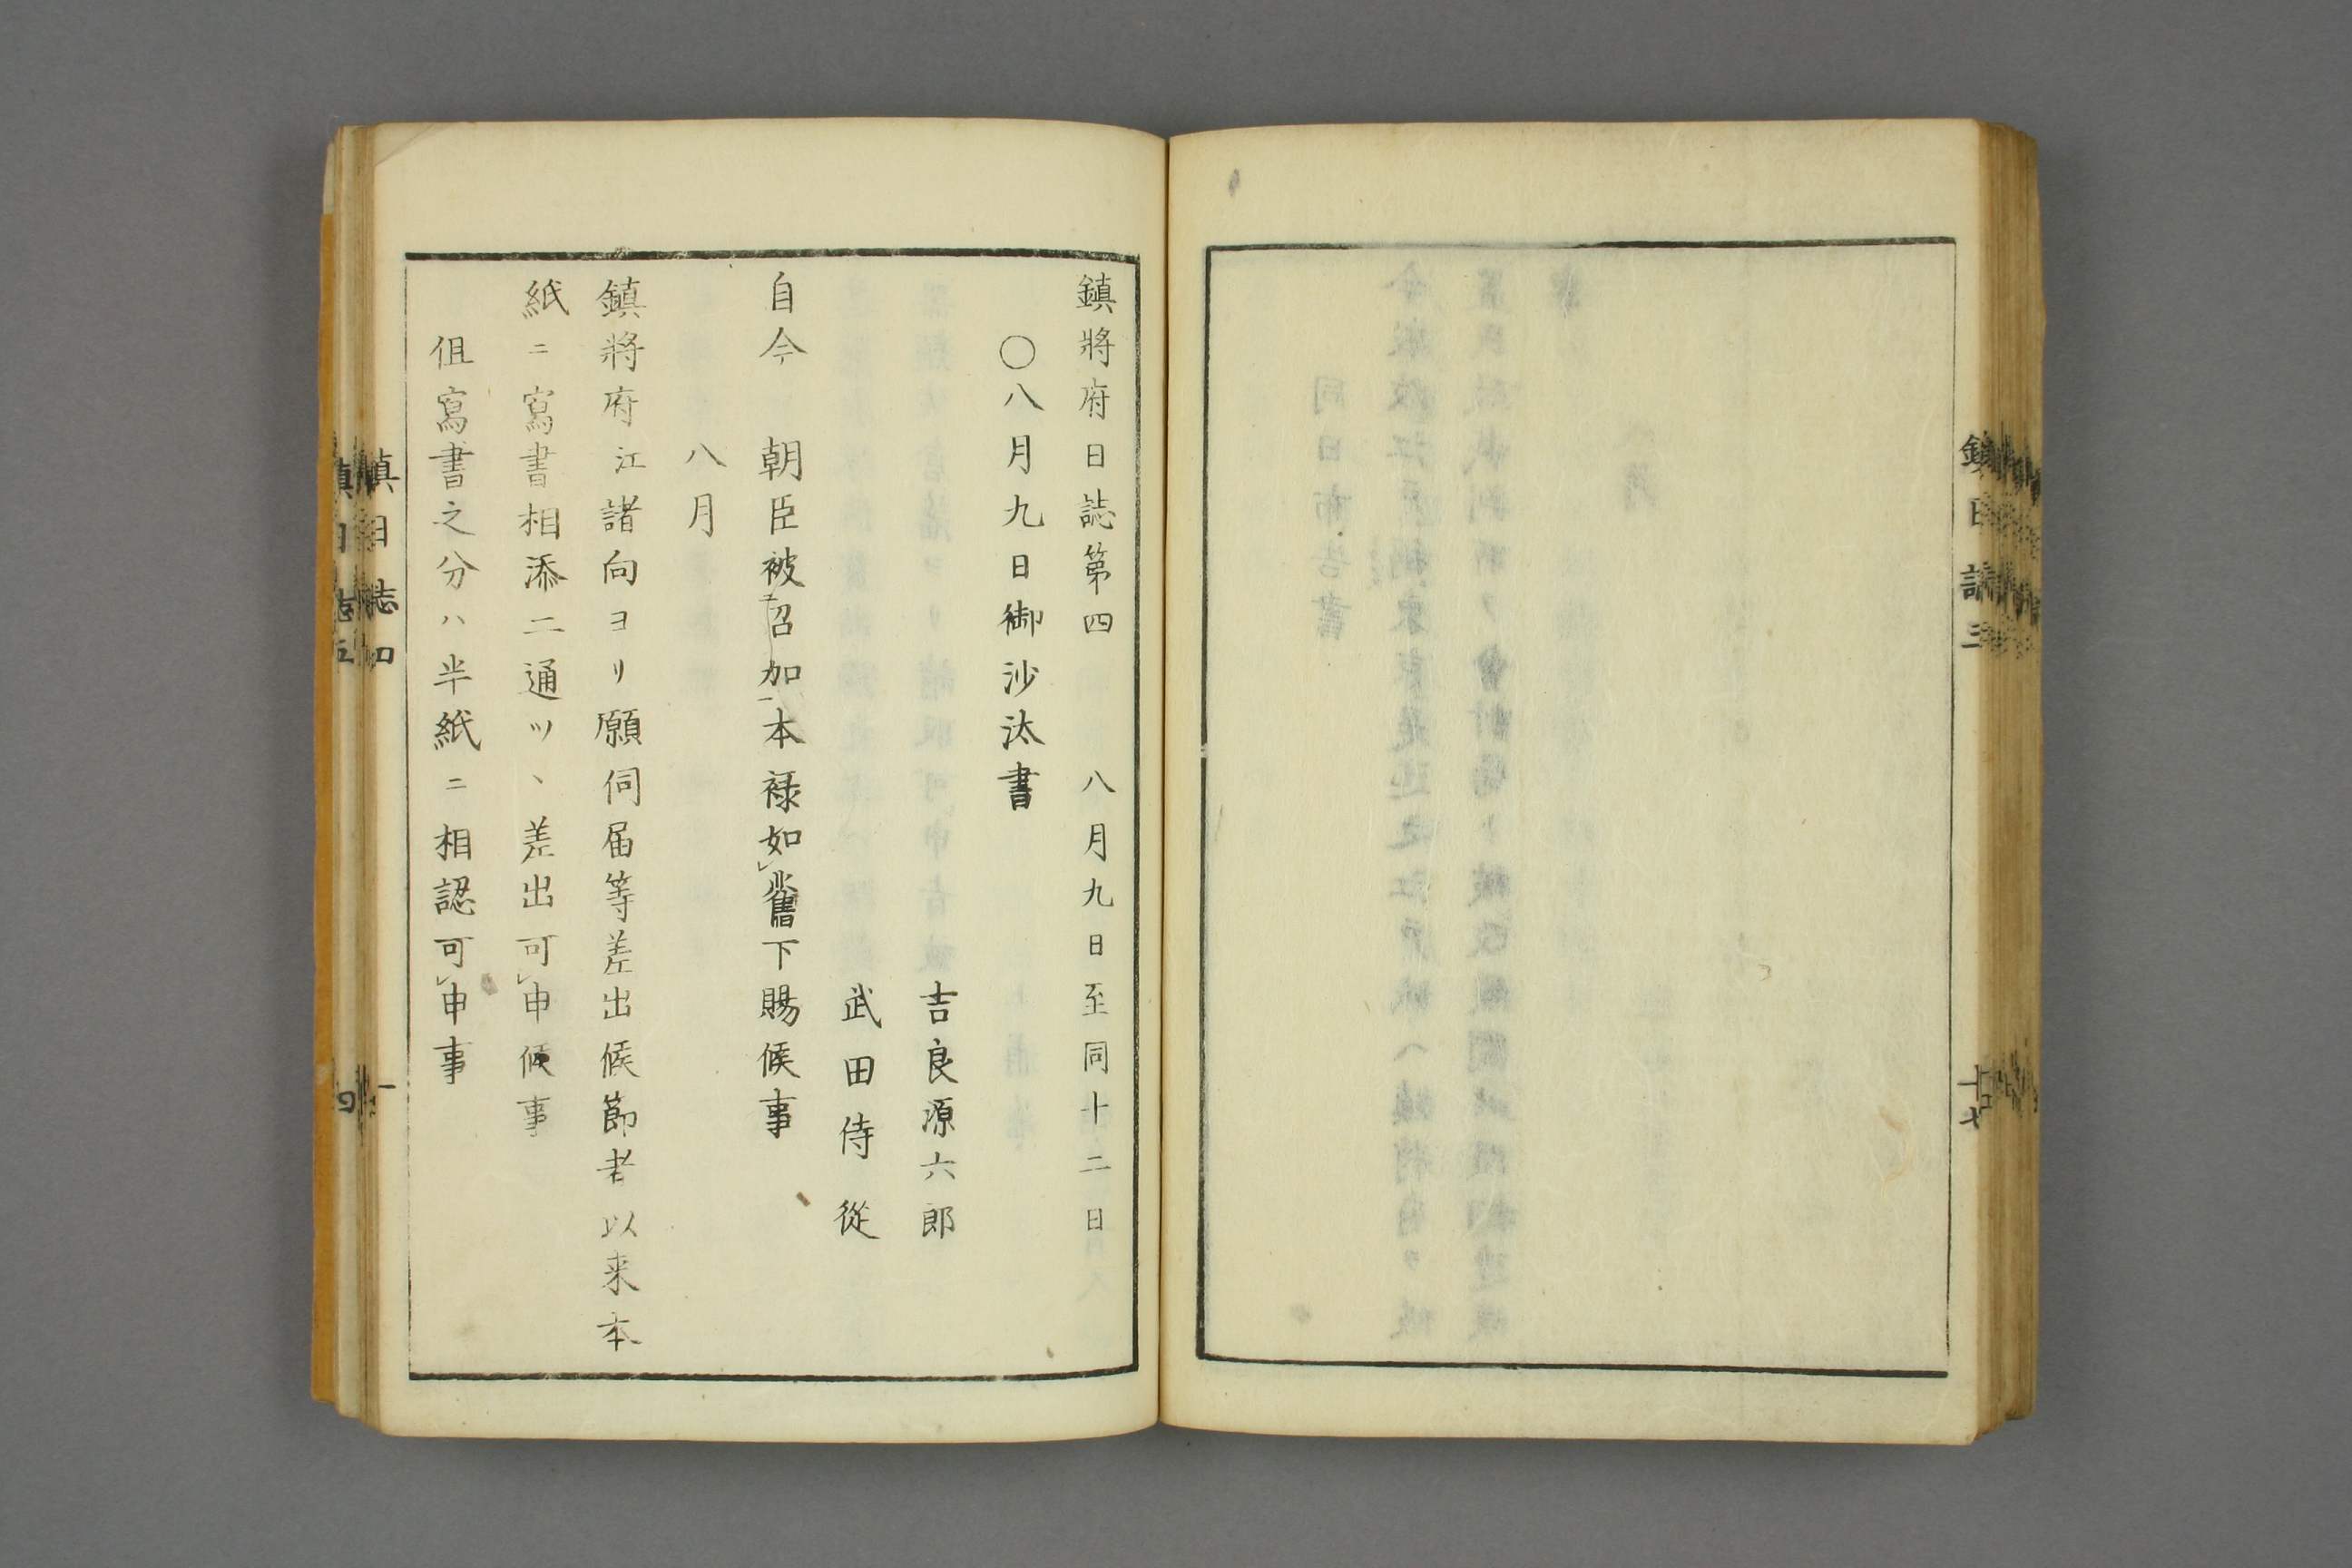 鎮日誌三
十七
鎮將府日誌第四 八月九日至同十二日
〇八月九日御沙汰書
吉良源六郎
武田侍從
自今 朝臣被召加本祿如舊下賜候事
八月
鎮將府江諸向ヨリ願伺届等差出候節者以来本
紙ニ寫書相添二通ツヽ差出可申候事
但寫書之分ハ半紙ニ相認可申事
鎮日誌四
一